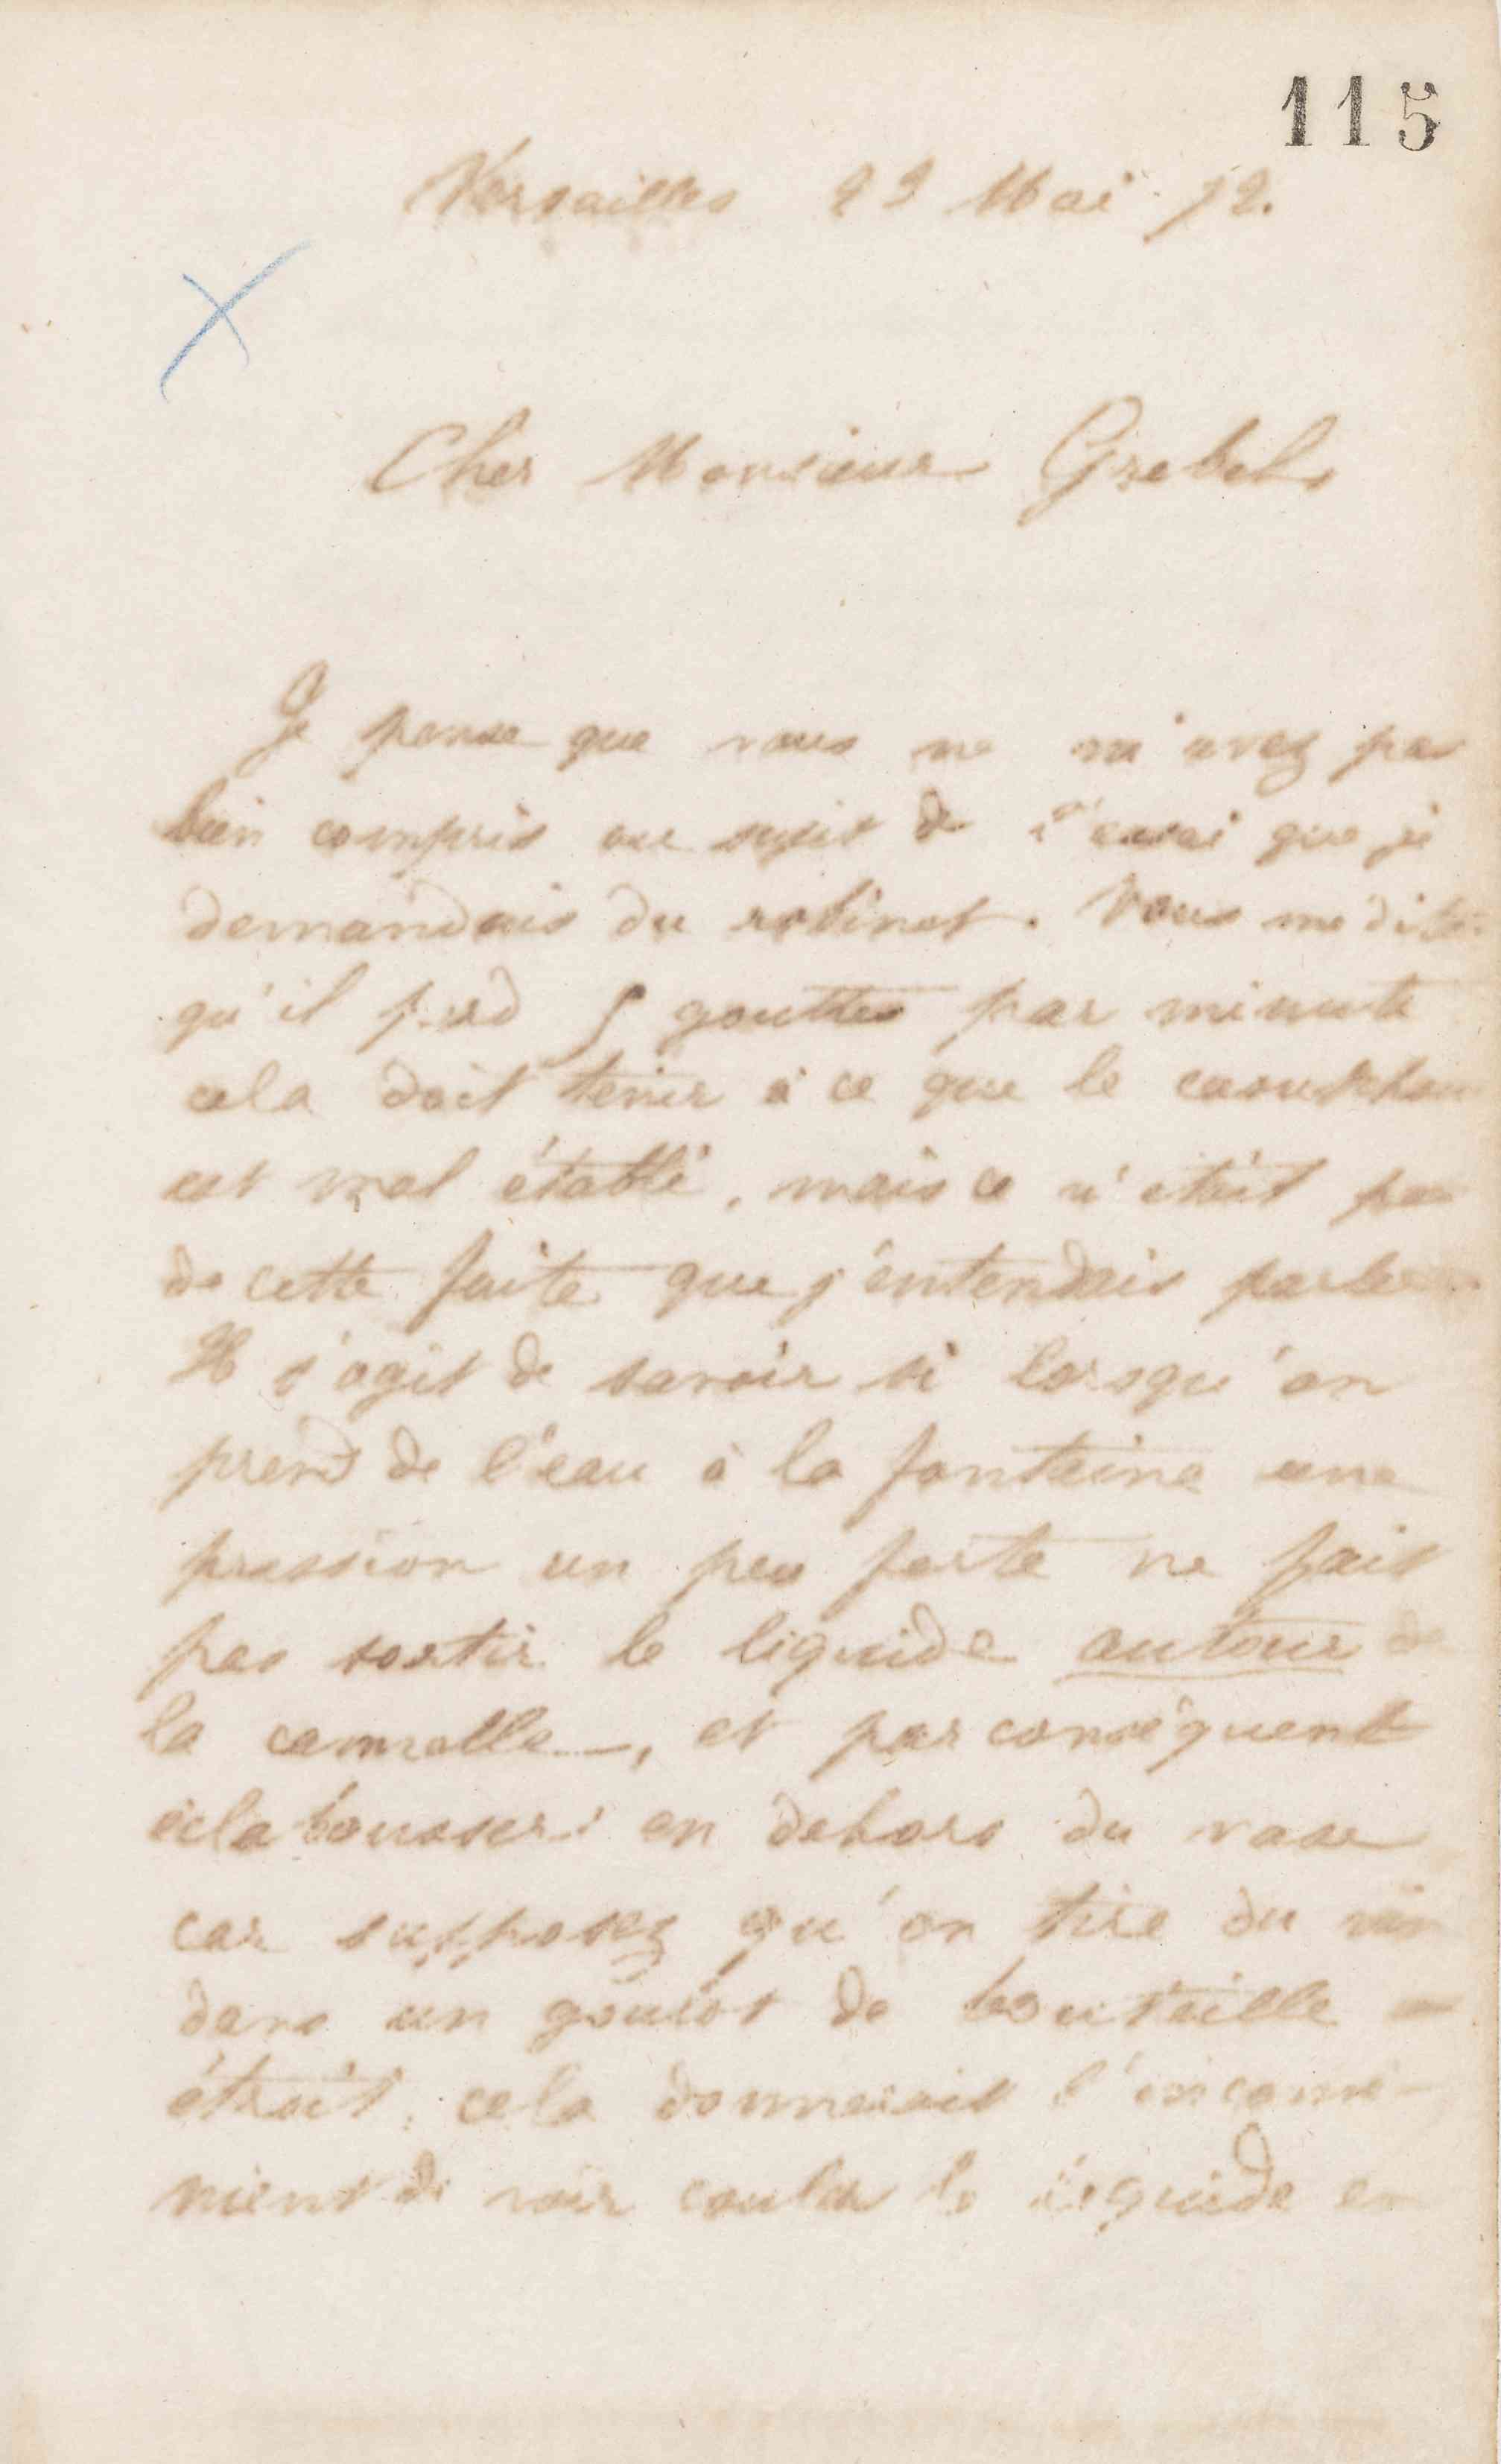 115
Versailles 23 Mai 72.
Cher Monsieur Grebel,
Je pense que vous ne m'avez pas
bien compris au sujet de l'essai que je
demandais du robinet. Vous me dites
qu'il perd 5 gouttes par minute
cela doit tenir à ce que le caoutchouc
est mal établi, mais ce n'était pas
de cette fuite que j'entendais parler
Il s'agit de savoir si lorsqu'on
prend de l'eau à la fontaine une
pression un peu forte ne fait
pas sortir le liquide autour de
la cannelle, et par conséquent
éclabousser en dehors du vase
car supposez qu'on tire du vin
dans un goulot de bouteille
étroit, cela donnerait l'inconvé-
nient de voir couler le liquide en